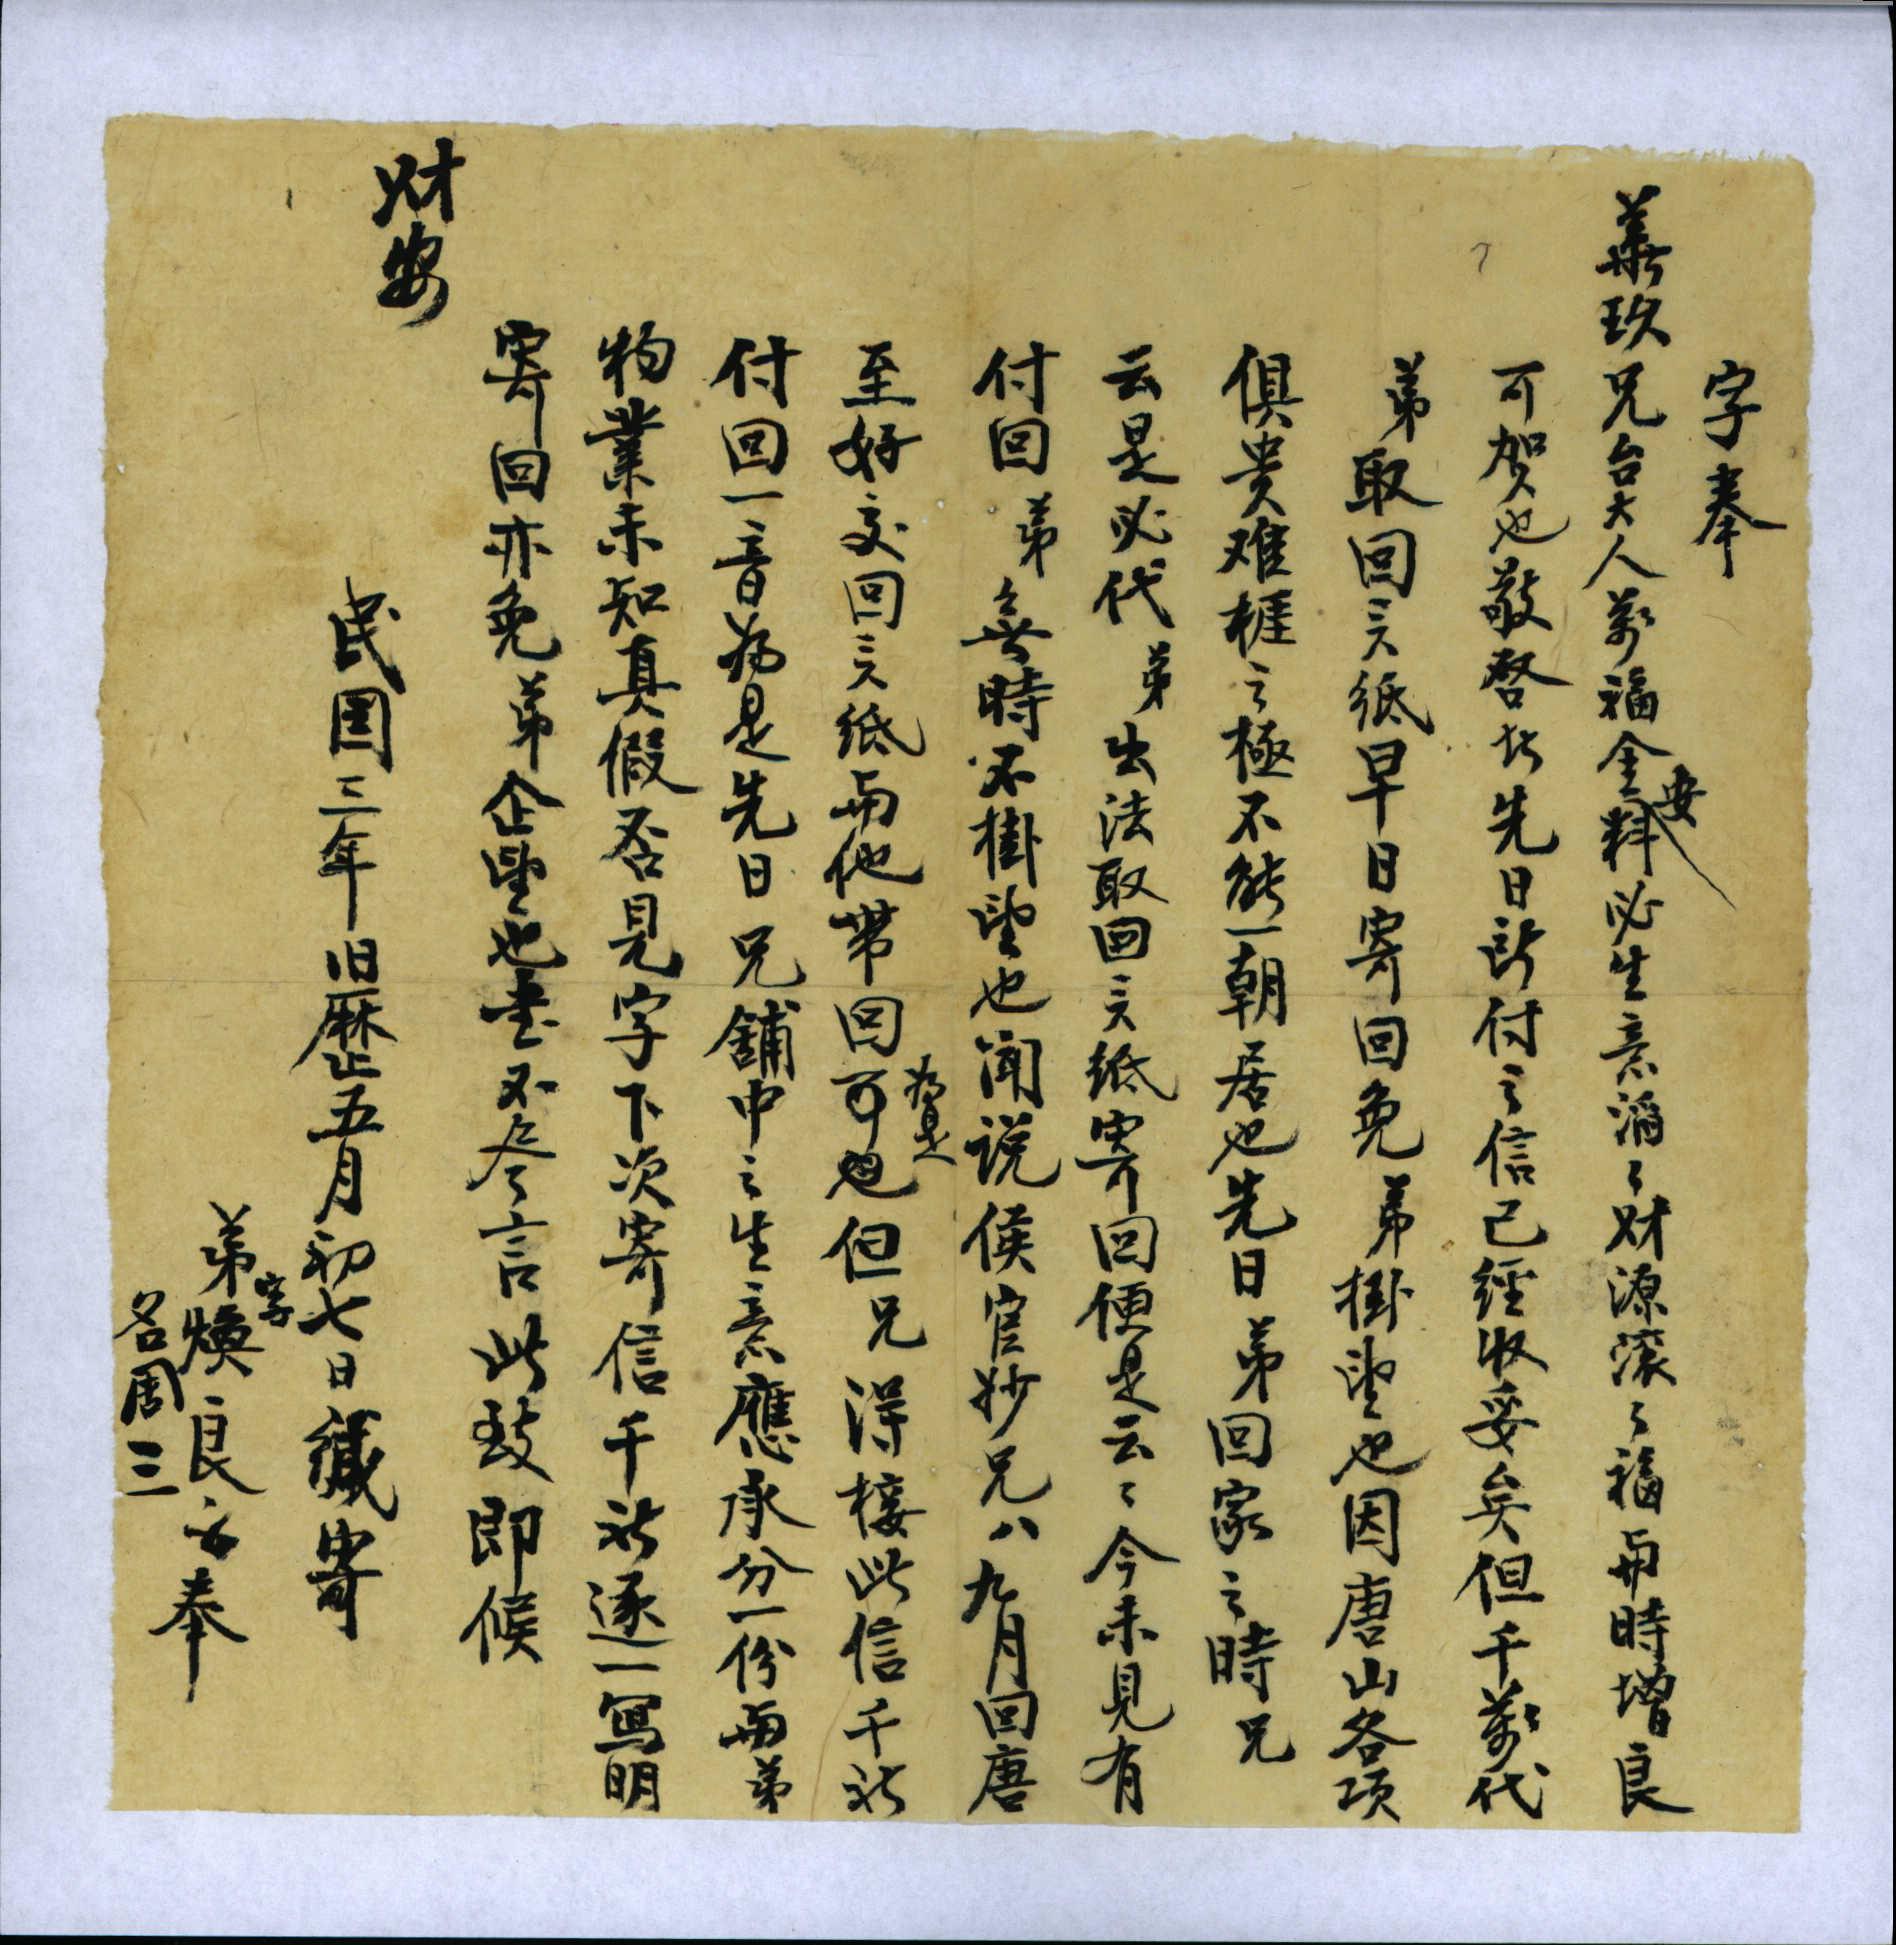 字奉
華玖兄台大人萬福金安料必生意滔々財源滾々福而時增良
可賀也敬啓者先日所付之信己經收妥矣但千萬代
弟取回三穴紙早日寄回免弟掛望也因唐山各項
俱贵难捱之極不能一朝居也先日弟回家之時兄
云是必代弟出法取回三穴纸寄回便是云々今未見有
付回弟無時不掛望也闻说侯官妙兄八九月回唐
至好交回三穴紙而他帶回可也為是但兄得接此信千祈
付回一音為是先日兄舖中之生意應承分一份而弟
物業未知真假否見字下次寄信千祈逐一寫明
寄回亦免弟企望也書不尽言此致即候
财安
民国三年旧曆五月初七日緘寄
弟字煥良 奉
名周三